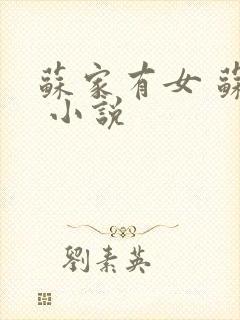 蘇家有女 蘇
小說
劉素英